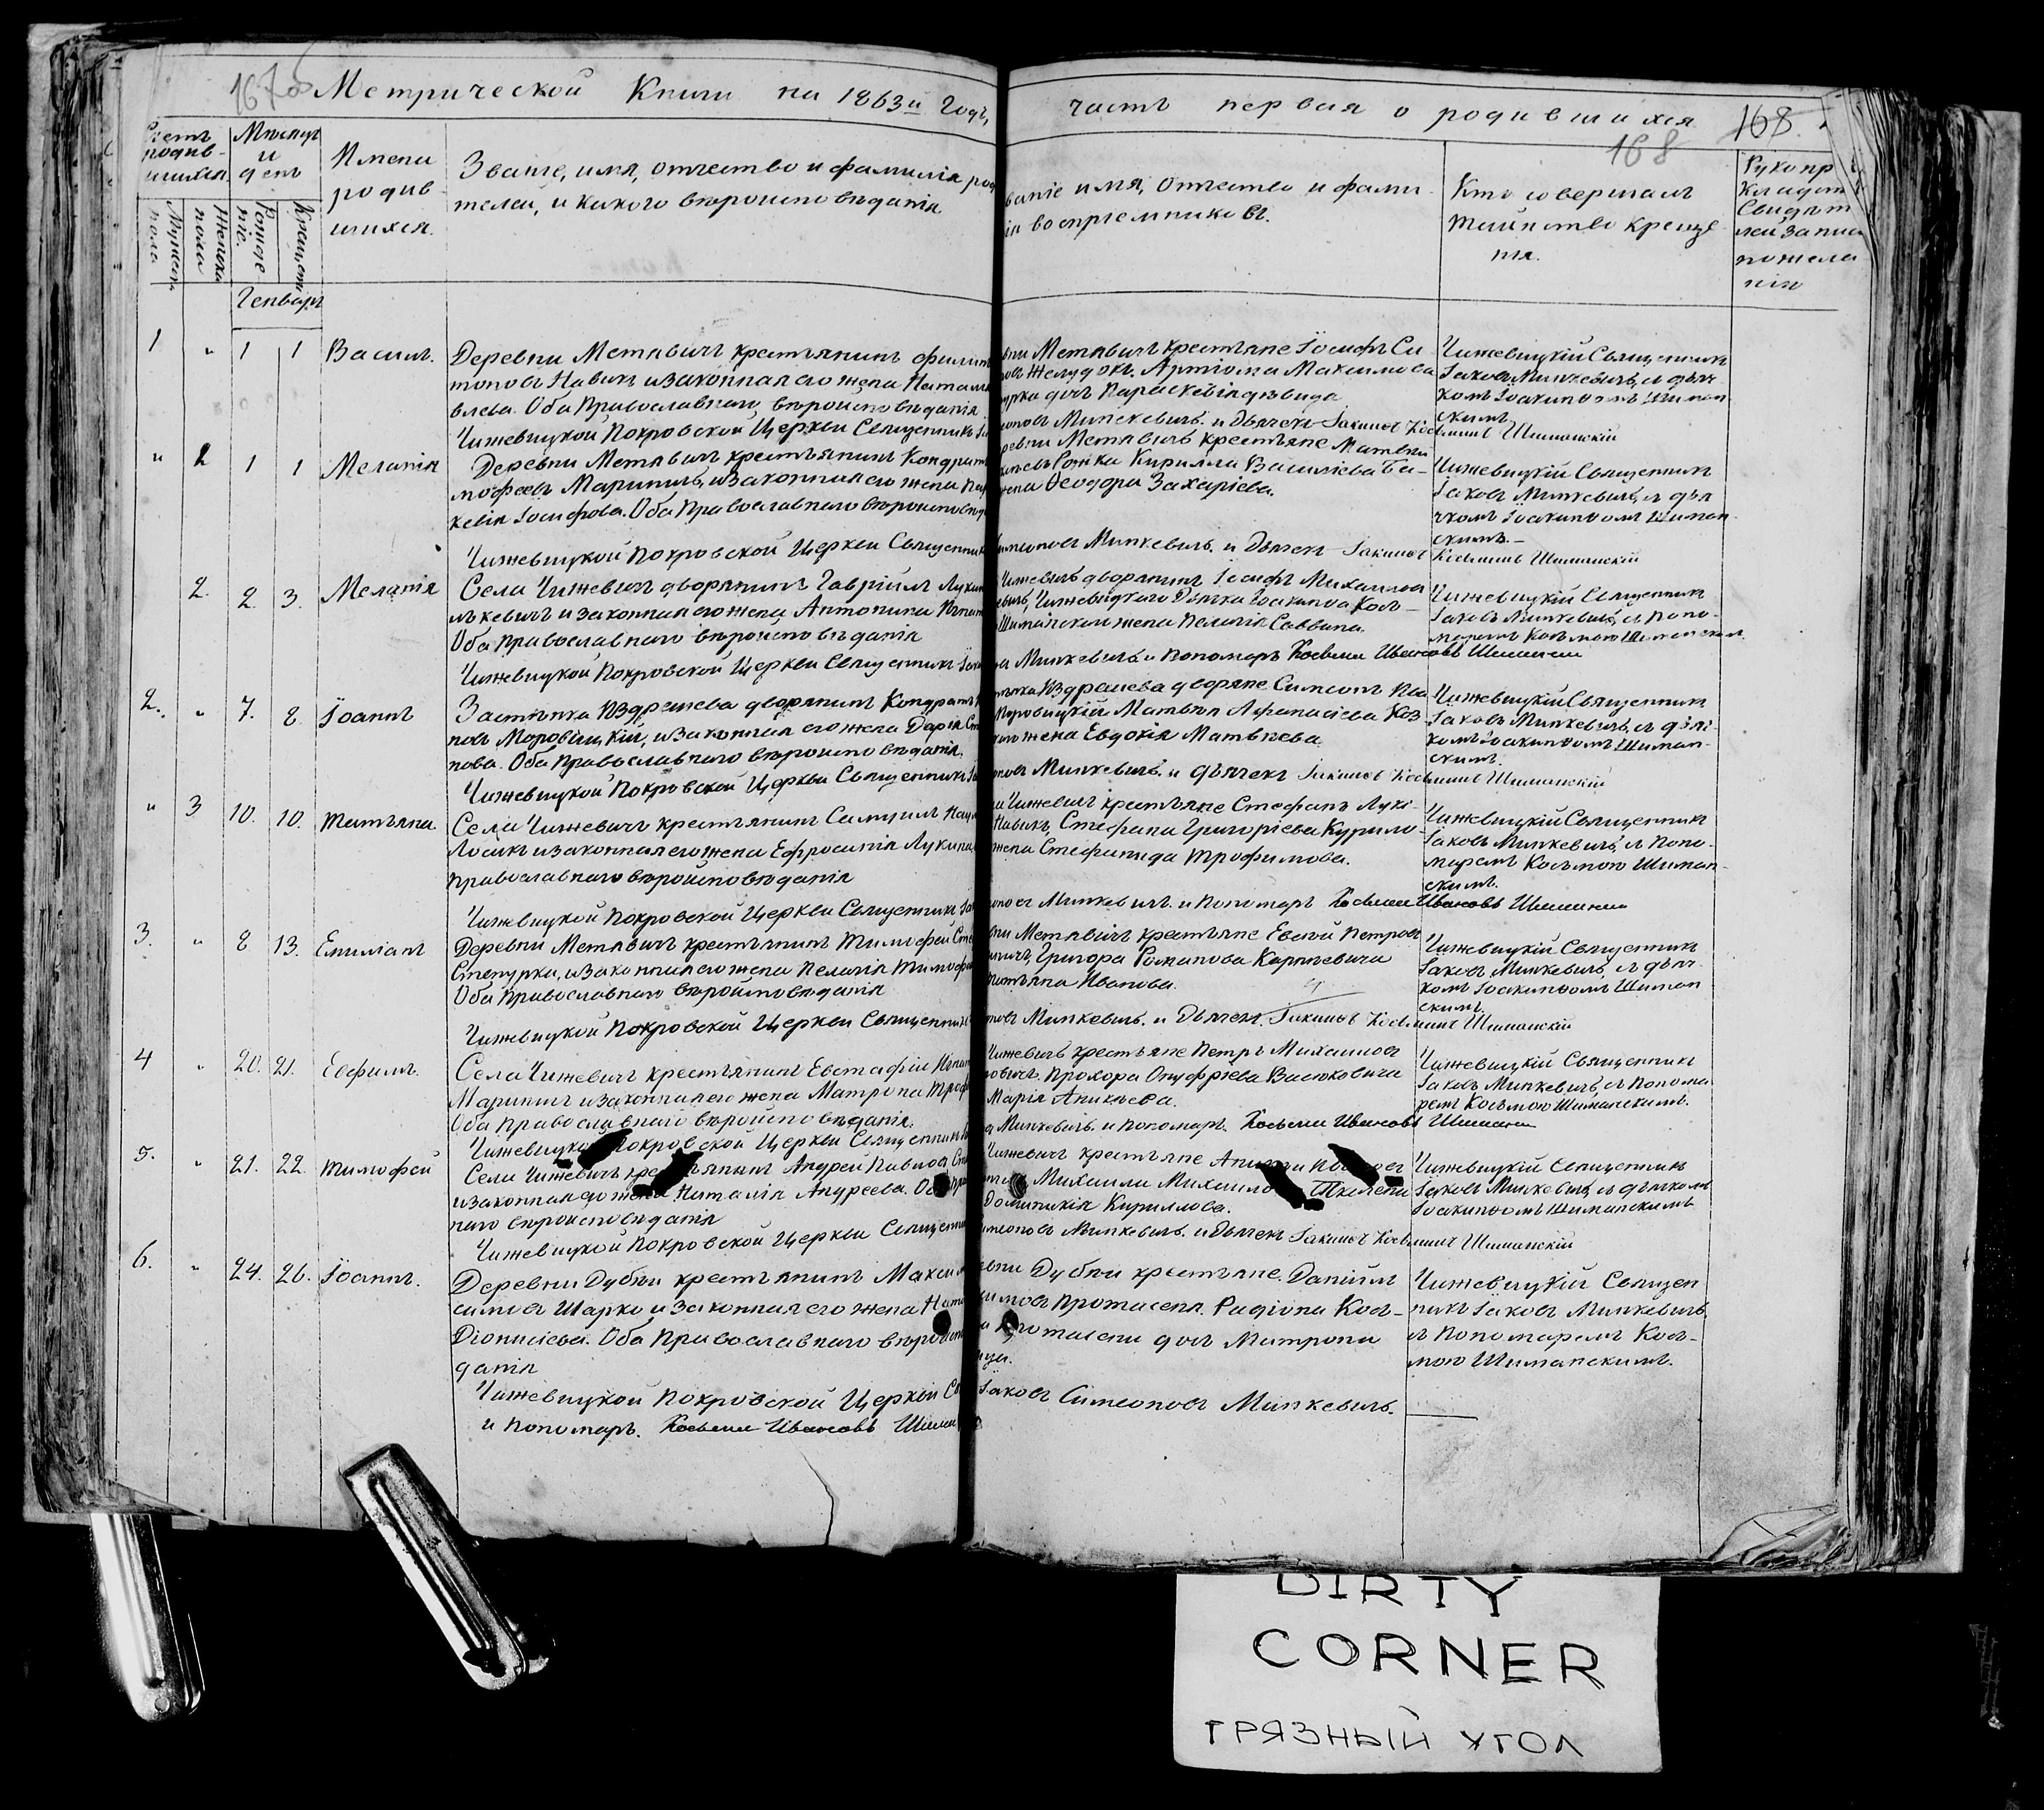 167об Метрической Книги на 1863й Годъ,
часть первая о родившихся 168.
168
Счетъ родив-
шихся.
Мужеска
пола
Женска
пола
Мѣсяцъ
и
день
Рожде-
нiе.
Крещенi
Имена
родив
шихся.
Званiе, имя, отчество и фамилiя род
телей, и какого вѣроисповѣданiя
ванiе имя, отчество и фами-
iя воспрiемниковъ.
Кто совершалъ
таинство креще
нiя.
Рукопр
кладст
свидѣт
лей записи
по жела
нiю
Генварь
1 " 1 1 Василь.
Деревни Метявичъ крестьянинъ филип
тоновъ Навикъ и законная его жена Натал
влева. Оба Православнаго вѣроисповѣданiя
Чижевицкой Покровской Церкви Священникъ
вни Метявичъ крестьяне Iосифъ Си-
новъ Желудокъ. Артема Максимова
урка дочь Параскевiя дѣвица
еоновъ Минкевичъ. и Дьячекъ Iакинѳъ Косьминъ Шиманскiй
Чижевицкiй Священникъ
Iаковъ Минкевичъ, съ дьяч-
комъ Iоакинѳомъ Шиман
скимъ
" 1 1 Меланiя
Деревни Метявичъ крестьянинъ Кондрат
мофеевъ Мариничъ, и законная его жена Пар
кевiя Iосифова. Оба Православнаго вѣроисповѣд
Чижевицкой Покровской Церкви Священник
ревни Метявичъ крестьяне Матвѣи
Рожка Кирилла Василiева Ба-
жена Ѳеодора Захарiева.
имеоновъ Минкевичъ. и Дьячекъ Iакинѳъ Косьминъ Шиманскiй
Чижевицкiй Священникъ
Iаковъ Минкевичъ, съ дья
чкомъ Iоакинѳомъ Шиман
скимъ.-
2. 2 3. Меланiя
Села Чижевичъ дворянинъ Гаврiилъ Лукин
лькевичъ и законная его жена Антонина Игнат
Оба Православнаго вѣроисповѣданiя
Чижевицкой Покровской Церкви Священникъ Iак
Чижевичъ дворянинъ Iосифъ Михаиловъ
евичъ, Чижевицкого Дьячка Iоакинѳа Косъ-
Шиманскаго жена Пелагiя Саввина.
ъ Минкевичъ и Пономаръ Косьма Ивановъ Шиманскiй
Чижевицкiй Священникъ
Iаковъ Минкевичъ, съ Поно-
маремъ Косьмою Шиманским
2. " 7. 8. Iоаннъ
Застѣнка Издрашева дворянинъ Кондратъ
новъ Моровицкiй, и законная его жена Дарiя Сте
нова. Оба Православнаго вѣроисповѣданiя.
Чижевицкой Покровской Церкви Священникъ
тѣнка Издрашева дворяне Симеонъ Ива
Моровицкiй Матвѣя Аѳанасiева Коз-
жена Евдокiя Матвѣева.
новъ Минкевичъ. и дьячекъ Iакинѳъ Косьминъ Шиманскiй
Чижевицкiй Священникъ
Iаковъ Минкевичъ, съ дьяч
комъ Iоакинѳомъ Шиман-
скимъ.
" 3 10. 10. Татьяна
Села Чижевичъ крестьянинъ Самуилъ Наум
Лосикъ и законная его жена Ефросинiя Лукина
Православнаго вѣроисповѣданiя
Чижевицкой Покровской Церкви Священникъ Iак
Чижевичъ крестьяне Стефанъ Луки-
Навикъ, Стефана Григорiева Курило-
жена Стефанида Трофимова.
оновъ Минкевичъ. и Пономаръ Косьма Ивановъ Шиманскiй
Чижевицкiй Священникъ
Iаковъ Минкевичъ, съ Поно-
маремъ Косьмою Шиман-
скимъ.
3. " 8 13. Емилiанъ
Деревни Метявичъ крестьянинъ Тимофей Сте
Стенурка, и законная его жена Пелагiя Тимофе
Оба Православнаго вѣроисповѣданiя
Чижевицкой Покровской Церкви Священник
вни Метявичъ крестьяне Евсѣй Петровъ
Григора Романова Карпѣевича
Татьяна Иванова.
новъ Минкевичъ. и Дьячекъ. Iакинѳъ Косьминъ Шиманскiй
Чижевицкiй Священникъ
Iаковъ Минкевичъ, съ дьяч-
комъ Iоакинѳомъ Шиман
скимъ.
4 " 20. 21. Евфимъ.
Села Чижевичъ крестьянинъ Евстафiй Игнат
Мариничъ и законная его жена Матрона Троф
Оба Православнаго вѣроисповѣданiя.
Чижевицкой Покровской Церкви Священникъ
Чижевичъ крестьяне Петръ Михаиловъ
Прохора Онуфрiева Васюковича
Марiя Аникѣева.
ъ Минкевичъ. и Пономаръ. Косьма Ивановъ Шиманскiй
Чижевицкiй Священникъ
Iаковъ Минкевичъ, съ Понома
ремъ Косьмою Шиманскимъ.
5. " 21. 22. Тимофей
Села Чижевичъ крестьянинъ Андрей Павловъ
и законная его жена Наталiя Андреева. Оба Пра
наго вѣроисповѣданiя
Чижевицкой Покровской Церкви Священни
Чижевичъ крестьяне
Михаила Михаило
Доминикiя Кириллова.
имеоновъ Минкевичъ. и Дьячекъ Iакинѳъ Косьминъ Шиманскiй
Чижевицкiй Священникъ
Iаковъ Минкевичъ, съ дьячкомъ
Iоакинѳомъ Шиманскимъ
6. " 24. 26. Iоаннъ.
Деревни Дубѣи крестьянинъ Макси
симовъ Шарко и законная его жена Ната
Дiонисiева. Оба Православнаго вѣроиспо
данiя
Чижевицкой Покровской Церкви Св
и Пономаръ. Косьма Ивановъ Шиман
вни Дубѣи крестьяне. Данiилъ
имовъ Протасеня. Радiона Кось-
а Протасени дочь Матрона
ица.
Iаковъ Симеоновъ Минкевичъ.
Чижевицкiй Священ
никъ Iаковъ Минкевичъ.
съ Пономаремъ Кось-
мою Шиманскимъ.
DIRTY
CORNER
ГРЯЗНЫЙ УГОЛ